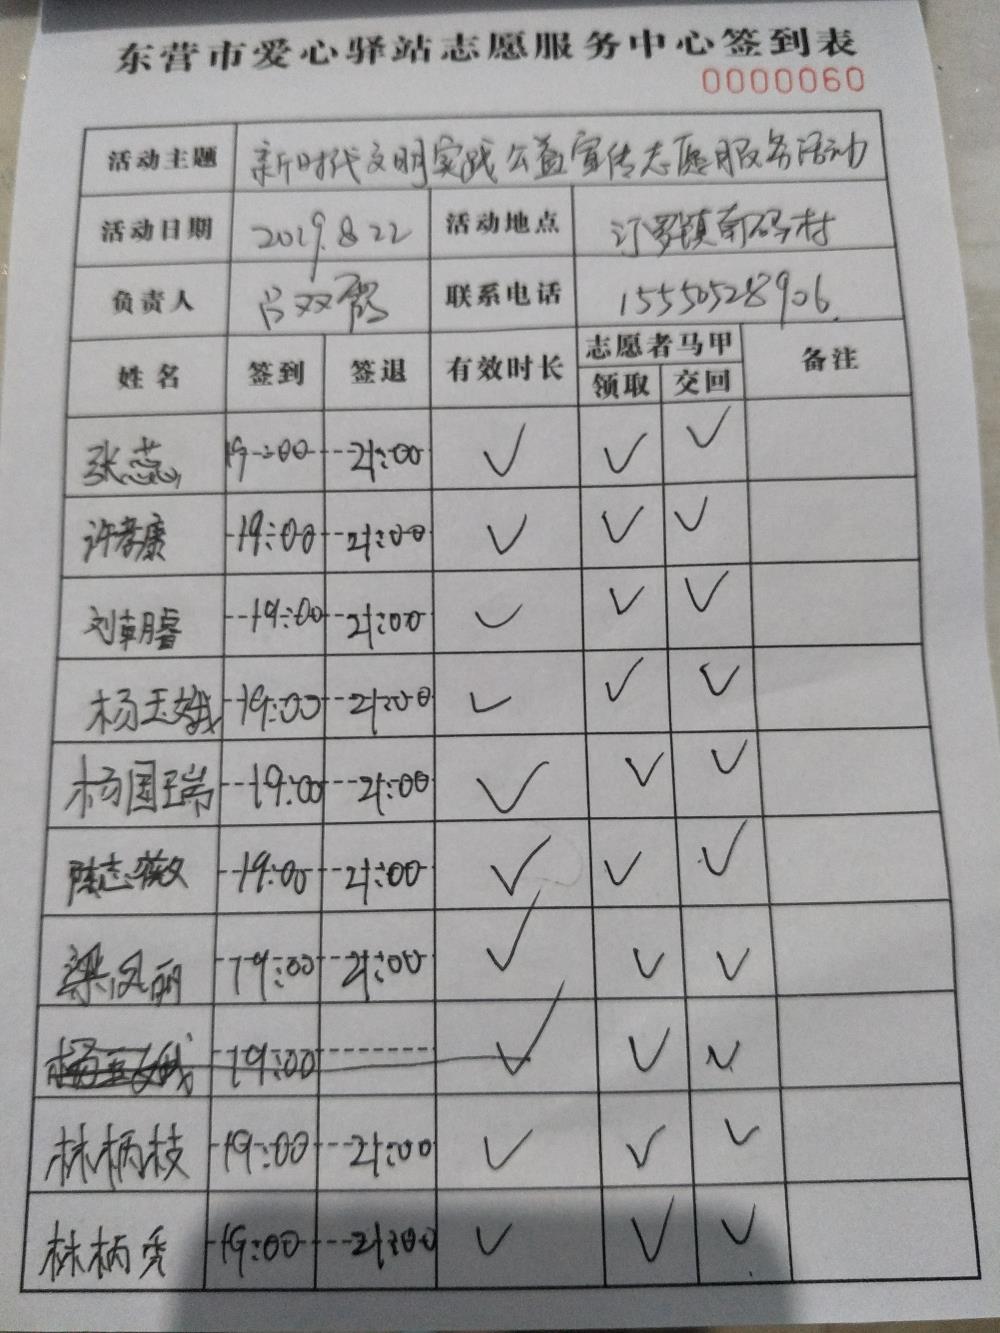 东营市爱心驿站志愿服务中心签到表
0000060
活动主题 新时代文明实践公益宣传志愿服务活动
活动日期 2019.8.22 活动地点 汀罗镇前码村
负责人 吕双霞 联系电话 15550528906
姓名 签到 签退 有效时长 志愿者马甲 备注
领取 交回
张蕊 19:00 21:00 ✓ ✓ ✓
许孝康 19:00 21:00 ✓ ✓ ✓
刘朝睿 19:00 21:00 ✓ ✓ ✓
杨玉娥 19:00 21:00 ✓ ✓ ✓
杨国瑞 19:00 21:00 ✓ ✓ ✓
陈志 19:00 21:00 ✓ ✓ ✓
梁凤丽 19:00 21:00 ✓ ✓ ✓
杨玉娥 19:00 ✓ ✓ ✓
林柄枝 19:00 21:00 ✓ ✓ ✓
林柄秀 19:00 21:00 ✓ ✓ ✓